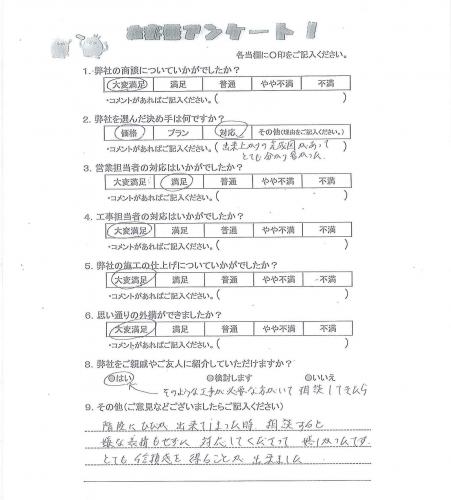 お客様アンケート！
各当欄に○印をご記入ください。
1. 弊社の商談についていかがでしたか？
大変満足 満足 普通 やや不満 不満
・コメントがあればご記入ください。( )
2. 弊社を選んだ決め手は何ですか？
価格 プラン 対応 その他(理由をご記入ください。)
・コメントがあればご記入ください。(出来上がりの完成図があって
とても分かり易かった)
3. 営業担当者の対応はいかがでしたか？
大変満足 満足 普通 やや不満 不満
・コメントがあればご記入ください。( )
4. 工事担当者の対応はいかがでしたか？
大変満足 満足 普通 やや不満 不満
・コメントがあればご記入ください。( )
5. 弊社の施工の仕上げについていかがでしたか？
大変満足 満足 普通 やや不満 不満
・コメントがあればご記入ください。( )
6. 思い通りの外構ができましたか？
大変満足 満足 普通 やや不満 不満
・コメントがあればご記入ください。( )
8. 弊社をご親戚やご友人に紹介していただけますか？
◎はい ◎検討します ◎いいえ
そのような工事が必要な方がいて相談してきたら
9. その他(ご意見などございましたらご記入ください)
階段にひびが出来てしまった時、相談すると
嫌な表情もせずに対応してくださって嬉しかったです。
とても信頼感を得ることが出来ました